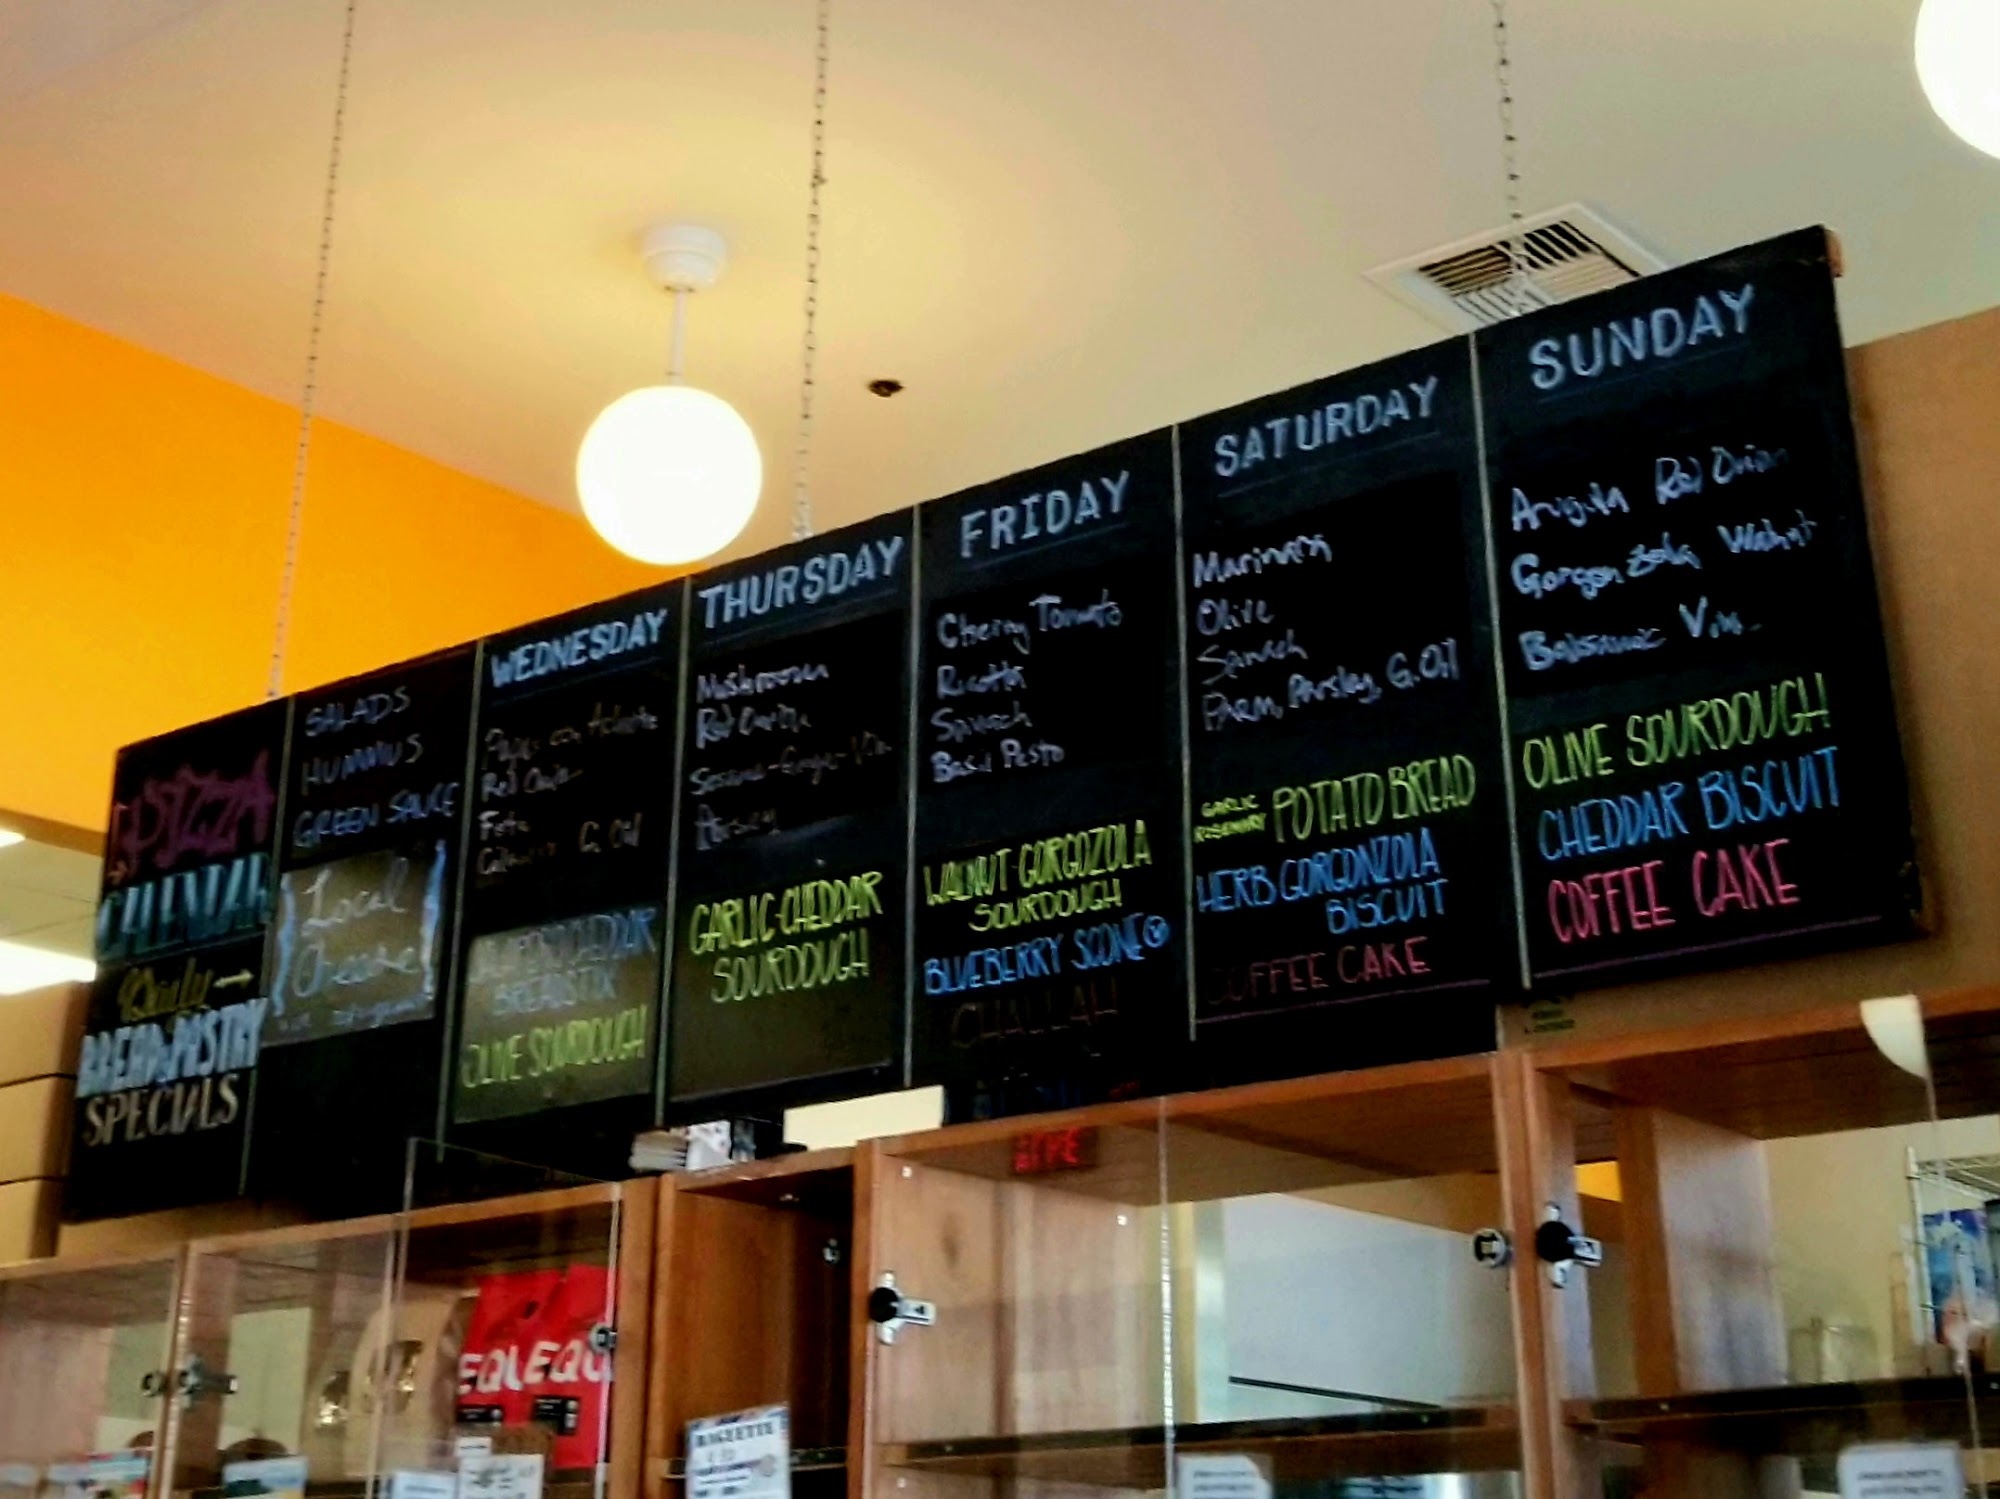 PIZZA
CALENDAR
Daily →
BREAD & PASTRY
SPECIALS
SALADS
HUMMUS
GREEN SAUCE
Local
Cheese
WEDNESDAY
Red Onion
Feta
G. Oil
CHEDDAR
BREADSTIX
OLIVE SOURDOUGH
THURSDAY
Mushroom
Red Onion
Sesame-Ginger-Vin
Parsley
GARLIC-CHEDDAR
SOURDOUGH
FRIDAY
Cherry Tomato
Ricotta
Spinach
Basil Pesto
WALNUT GORGOZOLA
SOURDOUGH
BLUEBERRY SCONE V
CHALLAH
SATURDAY
Marinara
Olive
Spinach
Parm, Parsley, G. Oil
GARLIC
ROSEMARY POTATO BREAD
HERB GORGONZOLA
BISCUIT
COFFEE CAKE
SUNDAY
Arugula Red Onion
Gorgonzola Walnut
Balsamic Vin.
OLIVE SOURDOUGH
CHEDDAR BISCUIT
COFFEE CAKE
EQU EQU
BAGUETTE